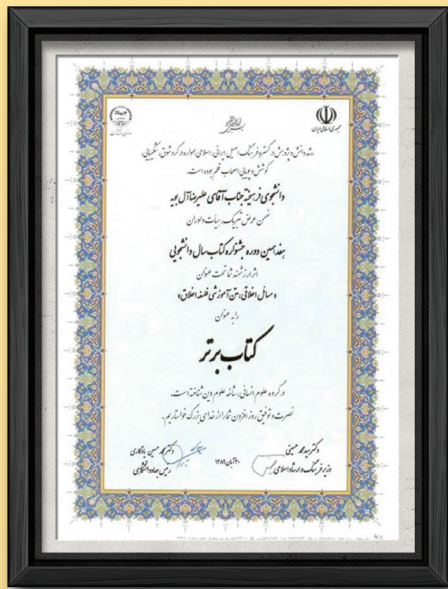 جهاد
جمهوری اسلامی ایران
رشد دانش و پژوهش در گستره فرهنگ اصیل ایرانی، اسلامی همواره در گرو شوق، شکیبایی،
کوشش و پویایی اصحاب قلم بوده است.
دانشجوی فرهیخته جناب آقای علیرضا آل بویه
ضمن عرض تبریک، هیات داوران
هفدهمین دوره جشنواره کتاب سال دانشجویی
اثر ارزشمند شما تحت عنوان
«مسائل اخلاقی، متن آموزشی فلسفه اخلاق»
را به عنوان
کتاب برتر
در گروه علوم انسانی، شاخه علوم دین شناخته است.
نصرت و توفیق روزافزون شما را از خدای بزرگ خواستاریم.
دکتر سید محمد حسینی
وزیر فرهنگ و ارشاد اسلامی
۳۰ آبان ۱۳۸۹
دکتر حسین یادگاری
رییس جهاد دانشگاهی